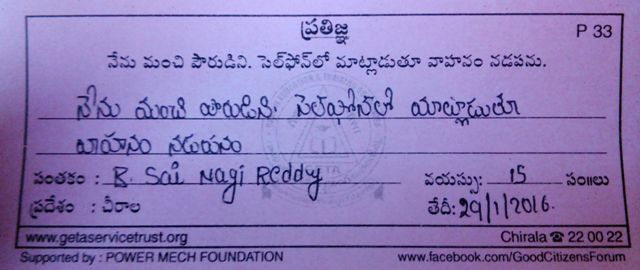 ప్రతిజ్ఞ P 33
నేను మంచి పౌరుడిని. సెల్‌ఫోన్‌లో మాట్లాడుతూ వాహనం నడపను.
నేను మంచి పౌరుడిని. సెల్‌ఫోన్‌లో మాట్లాడుతూ
వాహనం నడుపనం
సంతకం : B. Sai Nagi Reddy వయస్సు: 15 సం॥లు
ప్రదేశం : చీరాల తేదీ: 29/1/2016.
www.getaservicetrust.org Chirala ☎ 22 00 22
Supported by : POWER MECH FOUNDATION www.facebook.com/GoodCitizensForum